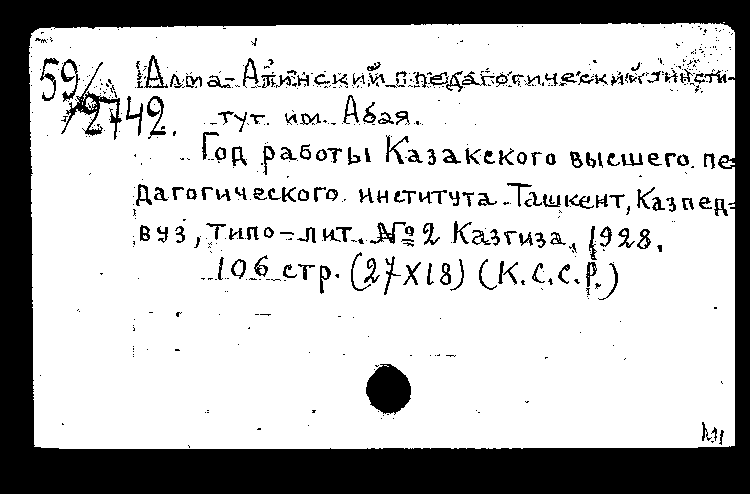 59/2742.
Алма-Атинский педагогический инсти-
тут им. Абая.
Год работы Казакского высшего пе-
дагогического института. Ташкент, Казпед-
вуз, типо-лит. № 2 Казгиза, 1928.
106 стр. (27×18) (К.С.С.Р.)